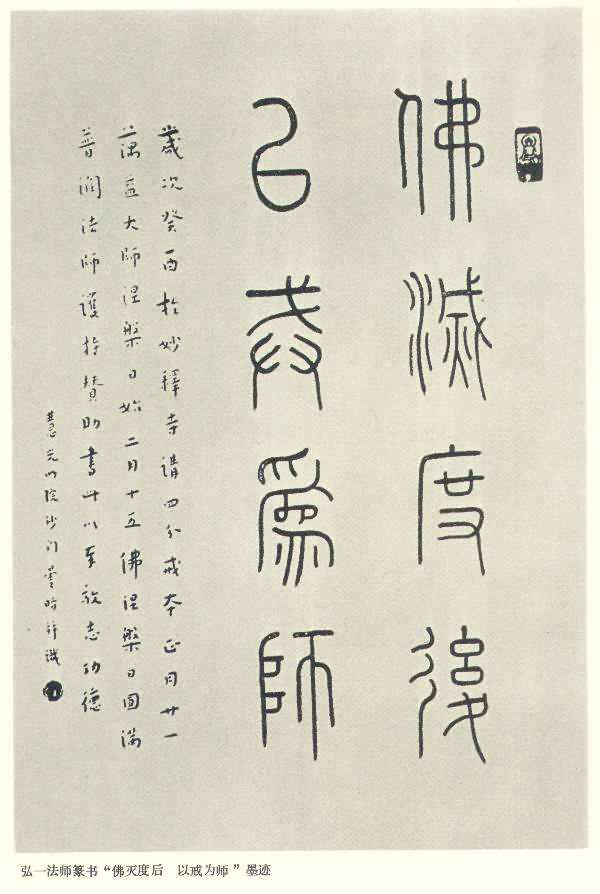 佛滅度後
以戒爲師
歲次癸酉於妙釋寺講四分戒本正月廿一
蕅益大師涅槃日始二月十五佛涅槃日圓滿
普潤法師護持贊助書此以奉志功德
沙門曇昉并識
弘一法师篆书“佛灭度后 以戒为师”墨迹